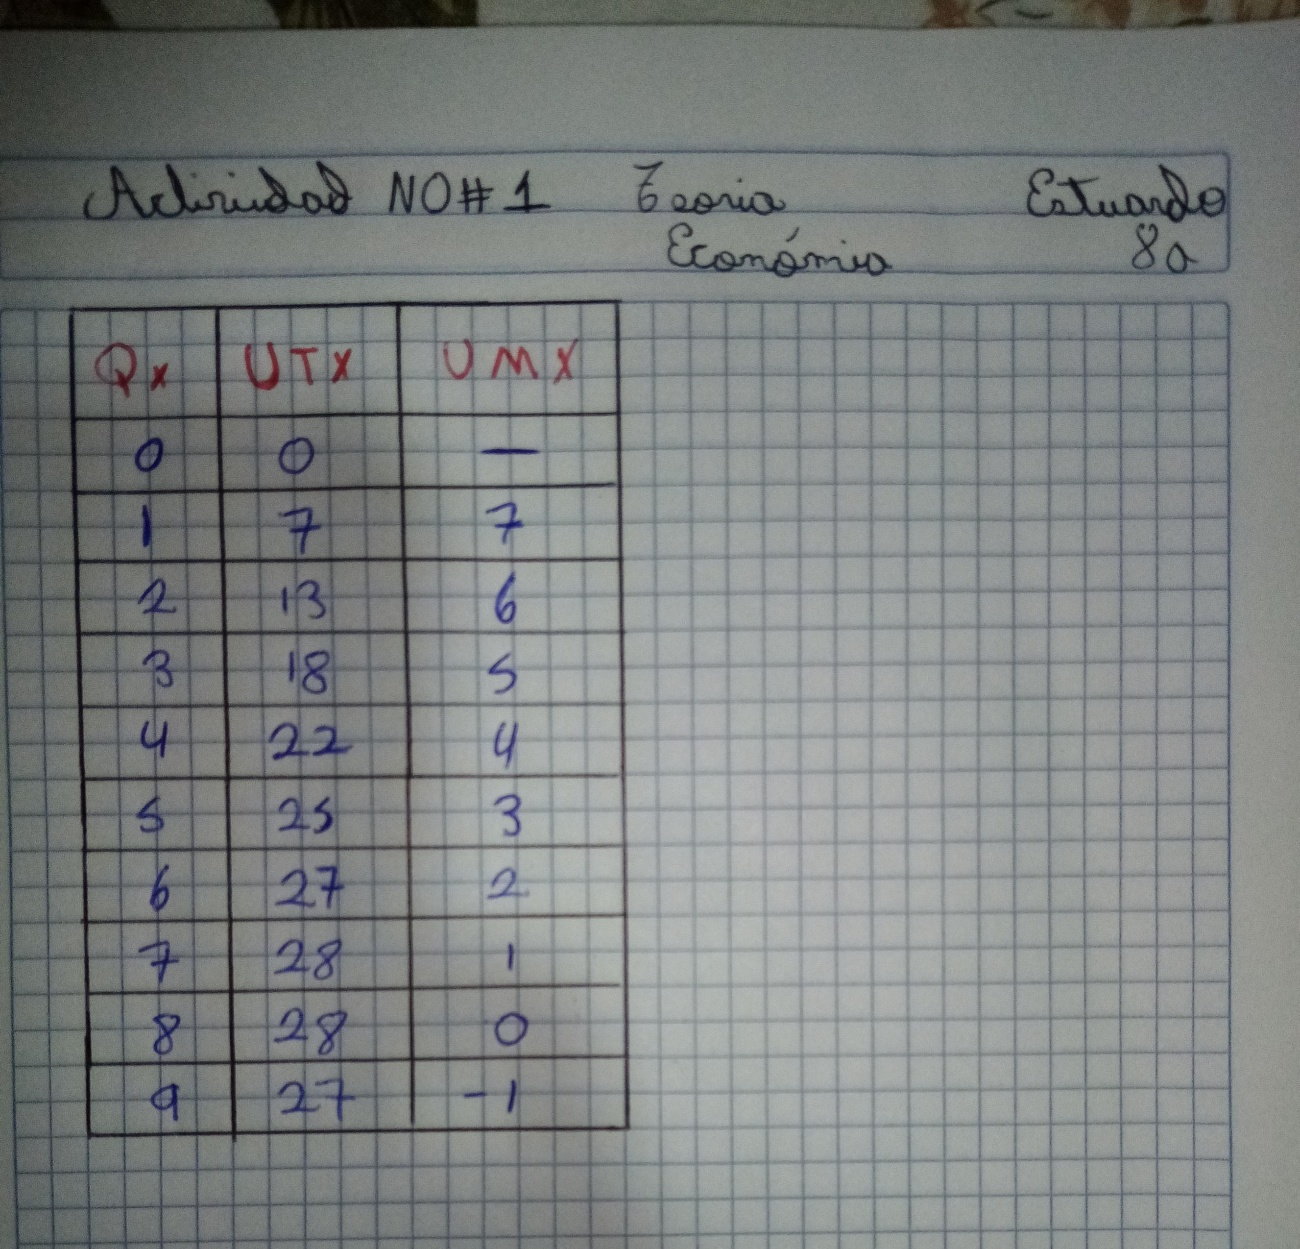 Actividad NO#1 Teoria Estuardo
Económica 8a
Qx UTX UMX
0 0 —
1 7 7
2 13 6
3 18 5
4 22 4
5 25 3
6 27 2
7 28 1
8 28 0
9 27 -1